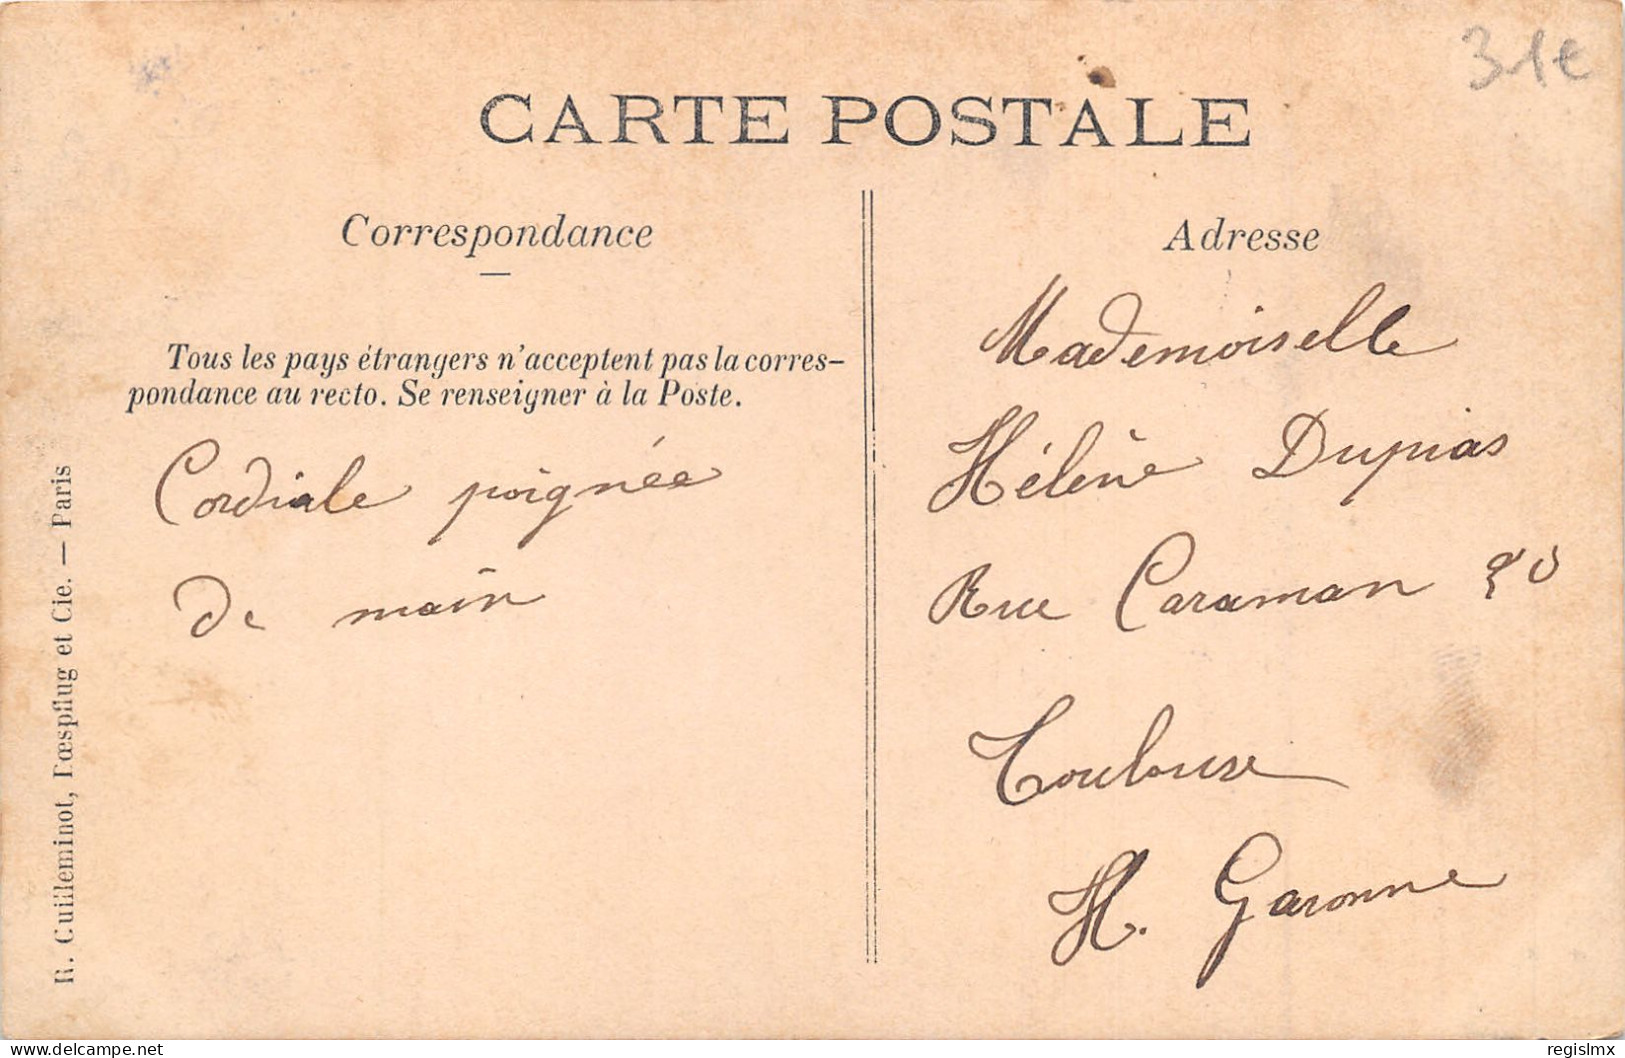 31€
CARTE POSTALE
Correspondance
Tous les pays étrangers n'acceptent pas la corres-
pondance au recto. Se renseigner à la Poste.
Cordiale poignée
de main
R. Guilleminot, Bœspflug et Cie. — Paris
Adresse
Mademoiselle
Hélène Dupias
Rue Caraman
Toulouse
H. Garonne
delcampe.net
regislmx